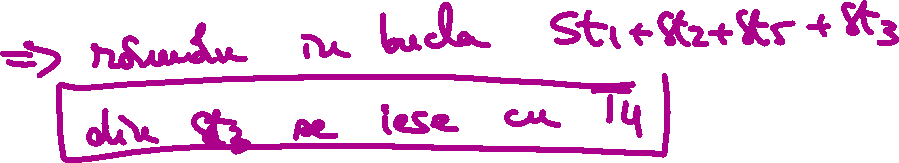 => rămân în bucla St1+St2+St5+St3
din St3 se iese cu T4